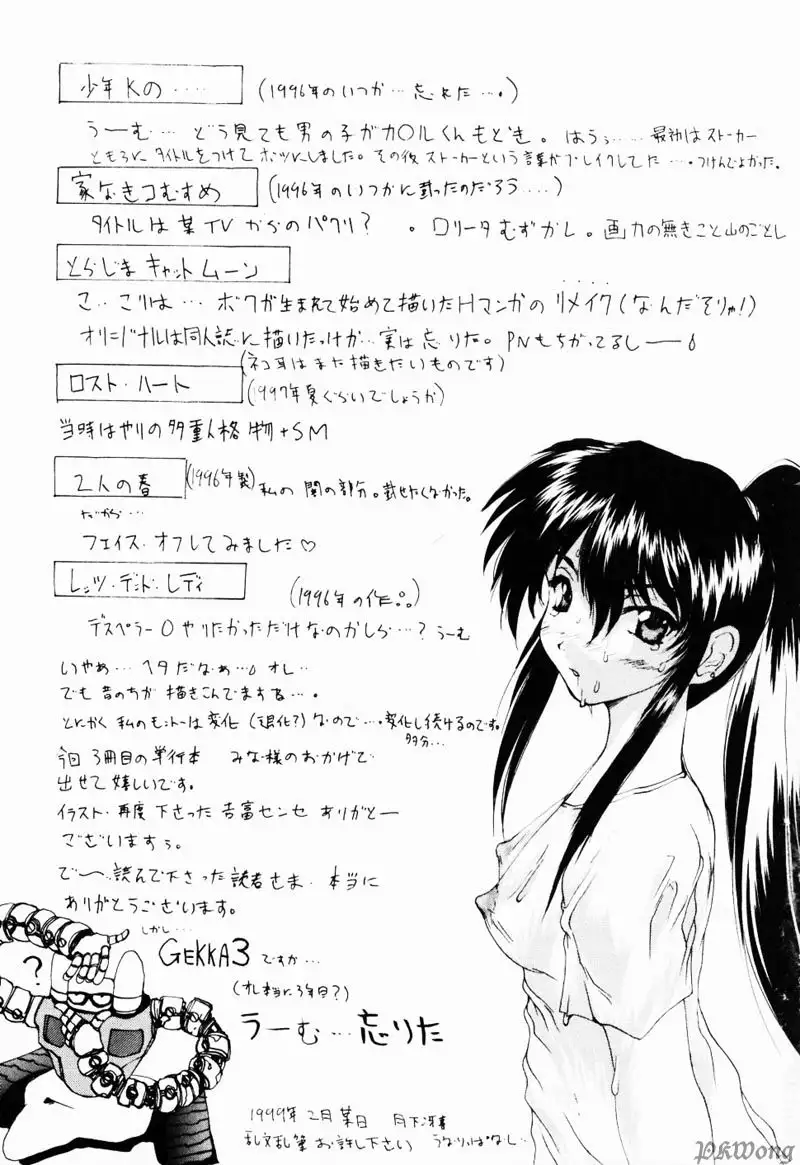 少年Kの‥‥
(1996年のいつか…忘れた…。)
うーむ… どう見ても男の子がカ○ルくんもどき。はうぅ…… 最初はストーカー
ともろにタイトルをつけてボツにしました。その後ストーカーという言葉がブレイクしてた…。つけんでよかった。
家なきコむすめ
(1996年のいつかに載ったのだろう‥‥)
タイトルは某TVからのパクリ? 。ロリータむずかし。画力の無きこと山のごとし
とらじまキャットムーン
こ‥こりは… ボクが生まれて始めて描いたHマンガのリメイク(なんだそりゃ!)
オリジナルは同人誌に描いたっけか…実は忘りた。PNもちがってるしーー
(ネコ耳はまた描きたいものです)
ロスト・ハート
(1997年夏ぐらいでしょうか)
当時はやりの多重人格物+SM
2人の春
(1996年製)
私の闇の部分。載せたくなかった。
だから…
フェイス・オフしてみました♡
レッツ・デッド・レディ
(1996年の作…)
デスペラー○やりたかっただけなのかしら…? うーむ
いやぁ… ヘタだなぁ… オレ…
でも昔のちが描きこんでますね…。
とにかく私のモットーは変化(退化?)なので…変化し続けるのです。
多分…
今回3冊目の単行本 みな様のおかげで
出せて嬉しいです。
イラスト・再度下さった吉富センセありがとー
ございますぅ。
で〜読んで下さった読者さま・本当に
ありがとうございます。
しかし…
GEKKA3ですか…
(オレ本当に3年目?)
うーむ…忘りた
?
1999年2月某日 月下冴喜
乱文乱筆お許し下さい うなりっぱなし…
PKWong